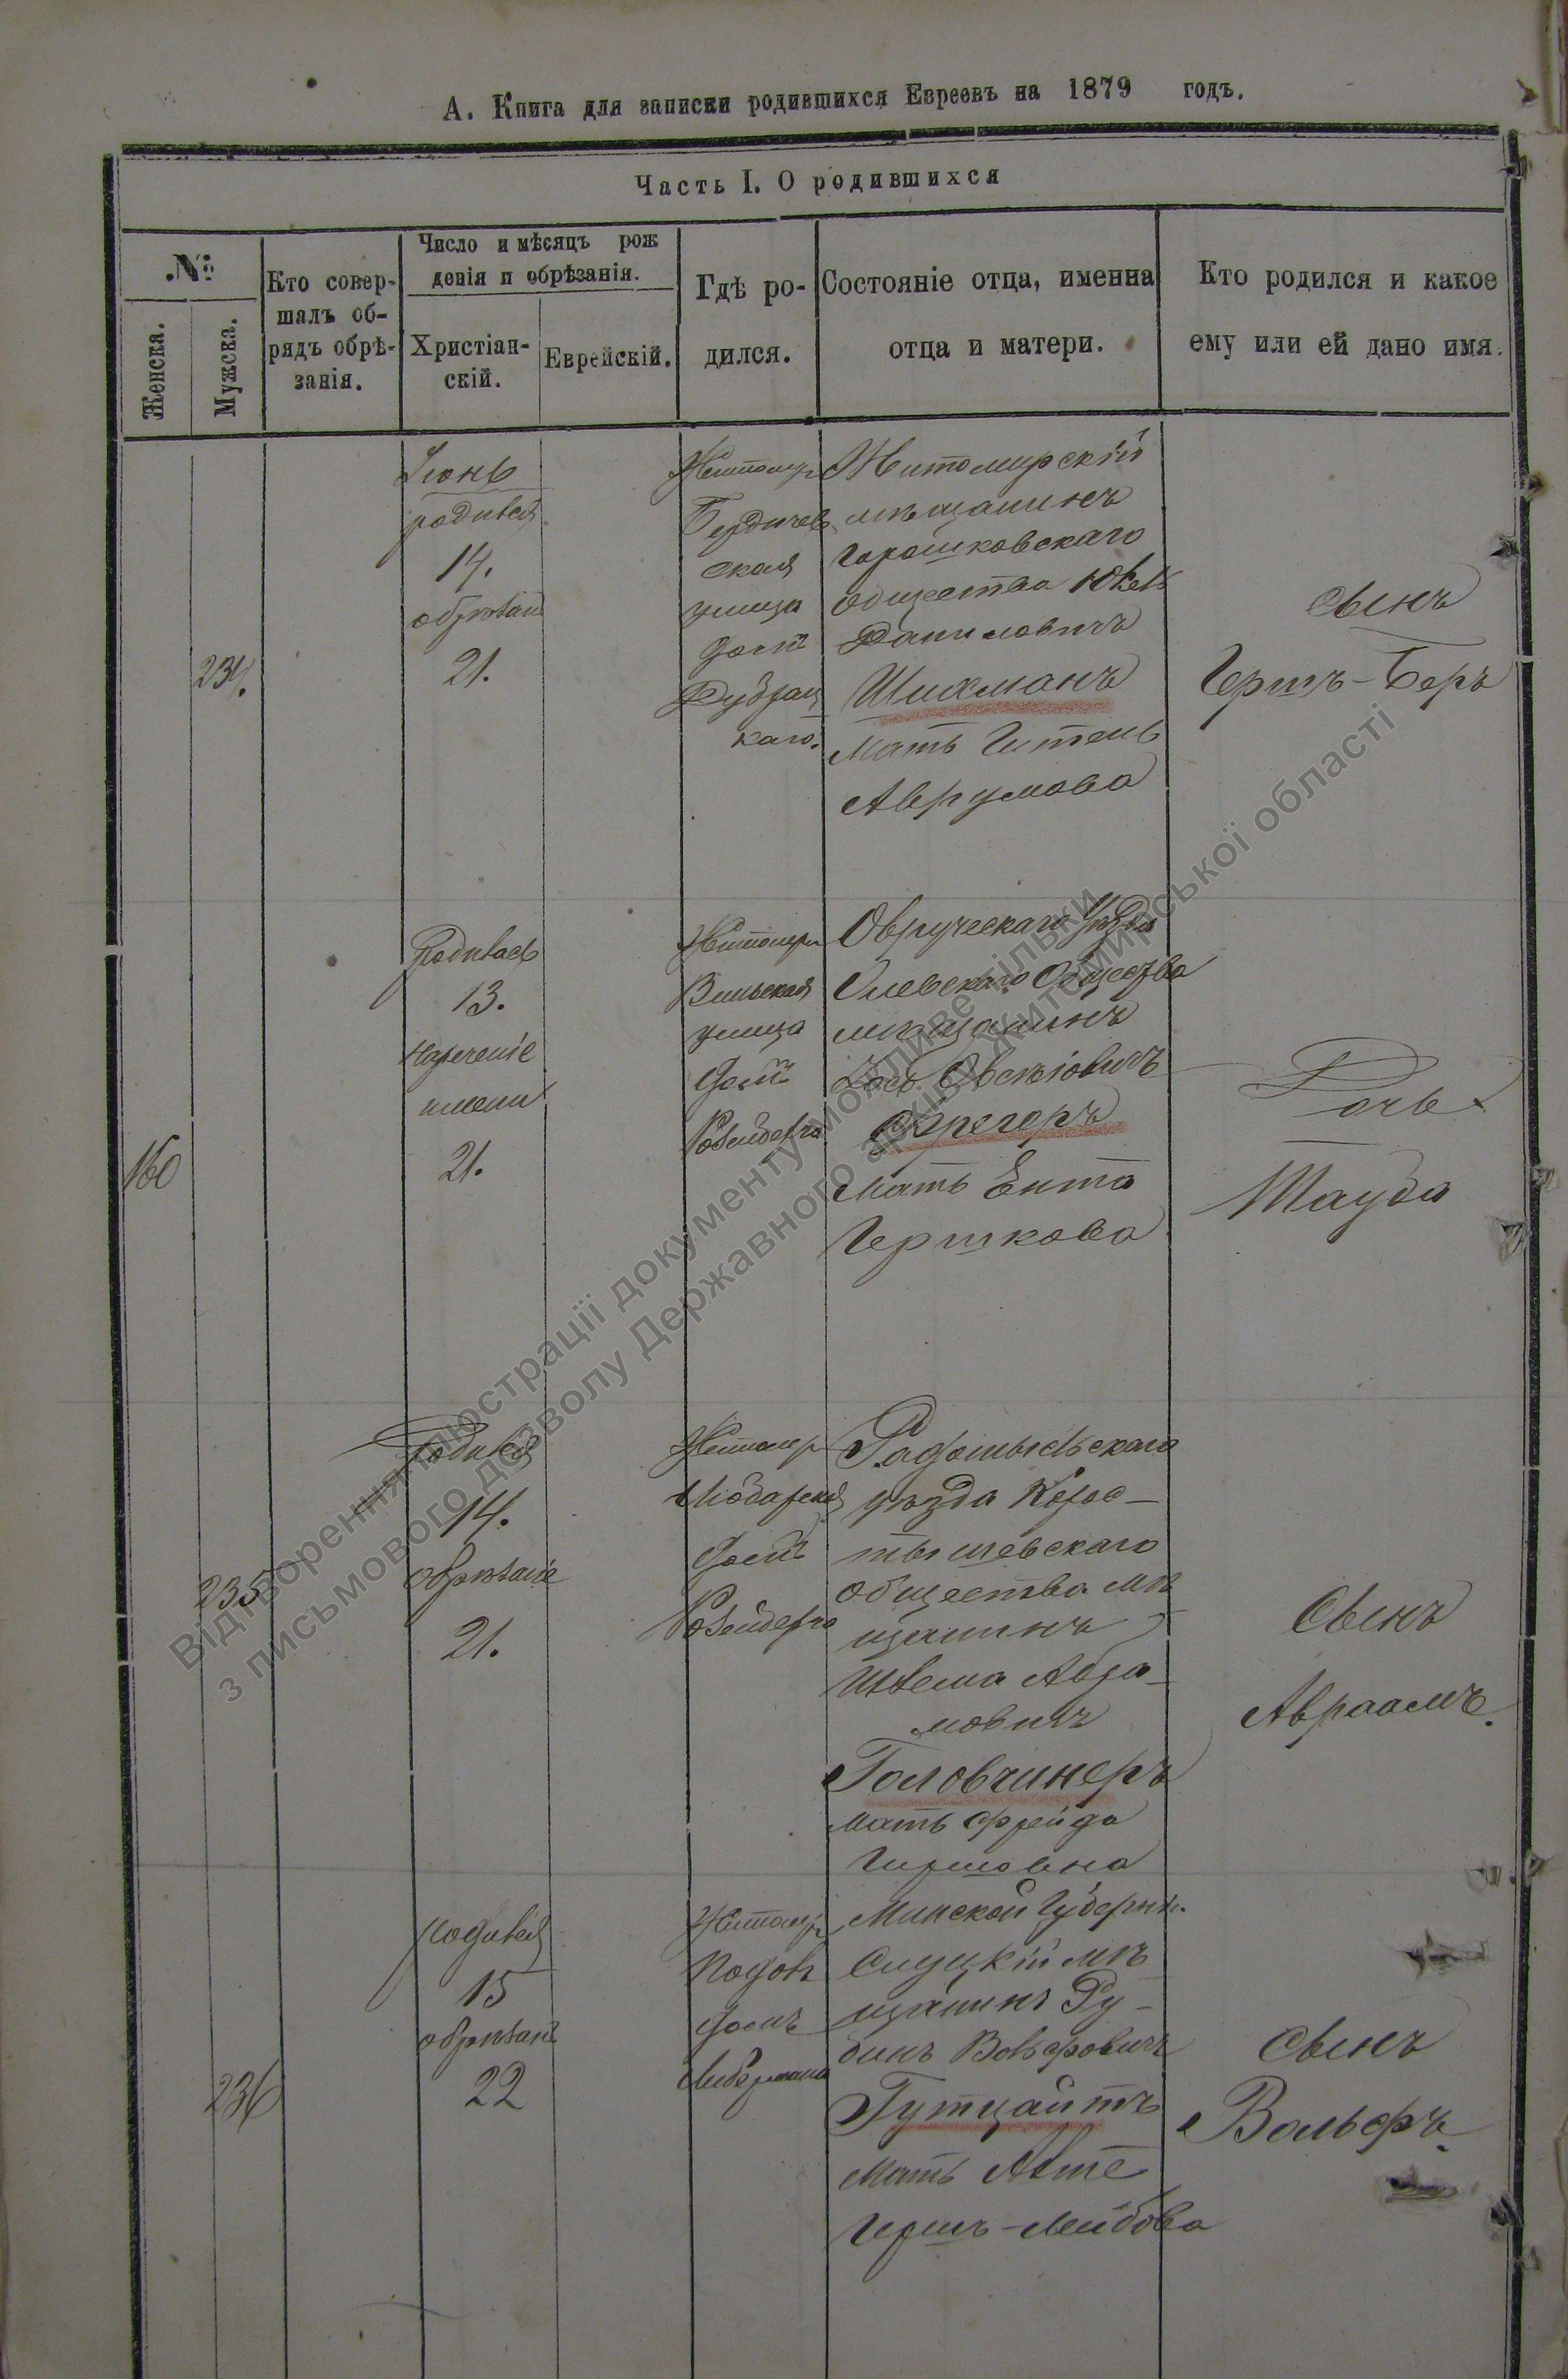 А. Книга для записки родившихся Евреевъ на 1879 годъ.
Часть I. О родившихся
№
Женска.
Мужска.
Кто совер-
шалъ об-
рядъ обрѣ-
занія.
Число и мѣсяцъ рож
денія и обрѣзанія.
Христіан-
скій.
Еврейскій.
Гдѣ ро-
дился.
Состояніе отца, именна
отца и матери.
Кто родился и какое
ему или ей дано имя.
234.
Іюнь
родился
14.
обрѣзан
21.
Житомир
Бердичев
ская
улица
домъ
каго.
Житомирскій
мѣщанинъ
Горошковскаго
общества
Даниловичъ
Шихманъ
Мать Гитель
Аврумова
сынъ
Герш-Беръ
160
Родилась
13.
Нареченіе
имени
21.
Житомир
Вильская
улица
домъ
Овручскаго Уѣзда
Олевскаго Общества
мѣщанинъ
Іосъ Овсѣіовичъ
Фрегеръ
Мать Ента
Гершкова
Дочь
Тауба
235
Родился
14.
обрѣзаніе
21.
Житомир
домъ
Радомысльскаго
уѣзда Корос-
тышевскаго
общества мѣ
щанинъ
Абра-
мовичъ
Головчинеръ
мать Фрейда
Гершовна
Сынъ
Авраамъ.
236
родился
15
обрѣзан
22
Житомир
домъ
Либермана
Минской Губерніи.
Слуцкій мѣ
щанинъ Ру-
бинъ Вольфовичъ
Гутцайтъ
Мать
Гершъ-Лейбова
Сынъ
Вольфъ.
Відтворення ілюстрації документу можливе тільки
з письмового дозволу Державного архіву Житомирської області